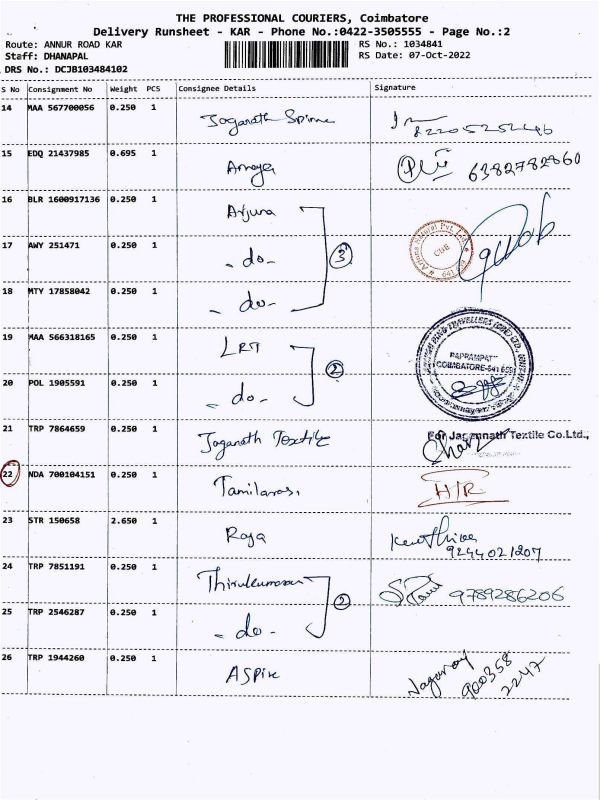 THE PROFESSIONAL COURIERS, Coimbatore
Delivery Runsheet - KAR - Phone No.:0422-3505555 - Page No.:2
Route: ANNUR ROAD KAR
RS No.: 1034841
Staff: DHANAPAL
RS Date: 07-Oct-2022
DRS No.: DCJB103484102
S No Consignment No Weight PCS Consignee Details Signature
14 MAA 567700056 0.250 1 Jaganath Spinne
15 EDQ 21437985 0.695 1 6382782860
16 BLR 1600917136 0.250 1 Arjuna
17 AWY 251471 0.250 1 - do - 3
18 MTY 17858042 0.250 1 - do -
19 MAA 566318165 0.250 1 LRT
PAPPAMPATTI
COIMBATORE-641
20 POL 1905591 0.250 1 - do - 2
21 TRP 7864659 0.250 1 Jaganath Textile For Jagannath Textile Co.Ltd.,
22 NDA 700104151 0.250 1 Tamilarasi H/R
23 STR 150658 2.650 1 Raja
9244021207
24 TRP 7851191 0.250 1 Thirukumaran 9789286206
25 TRP 2546287 0.250 1 - do - 2
26 TRP 1944260 0.250 1 Aspire Nagaraj
900358
2247